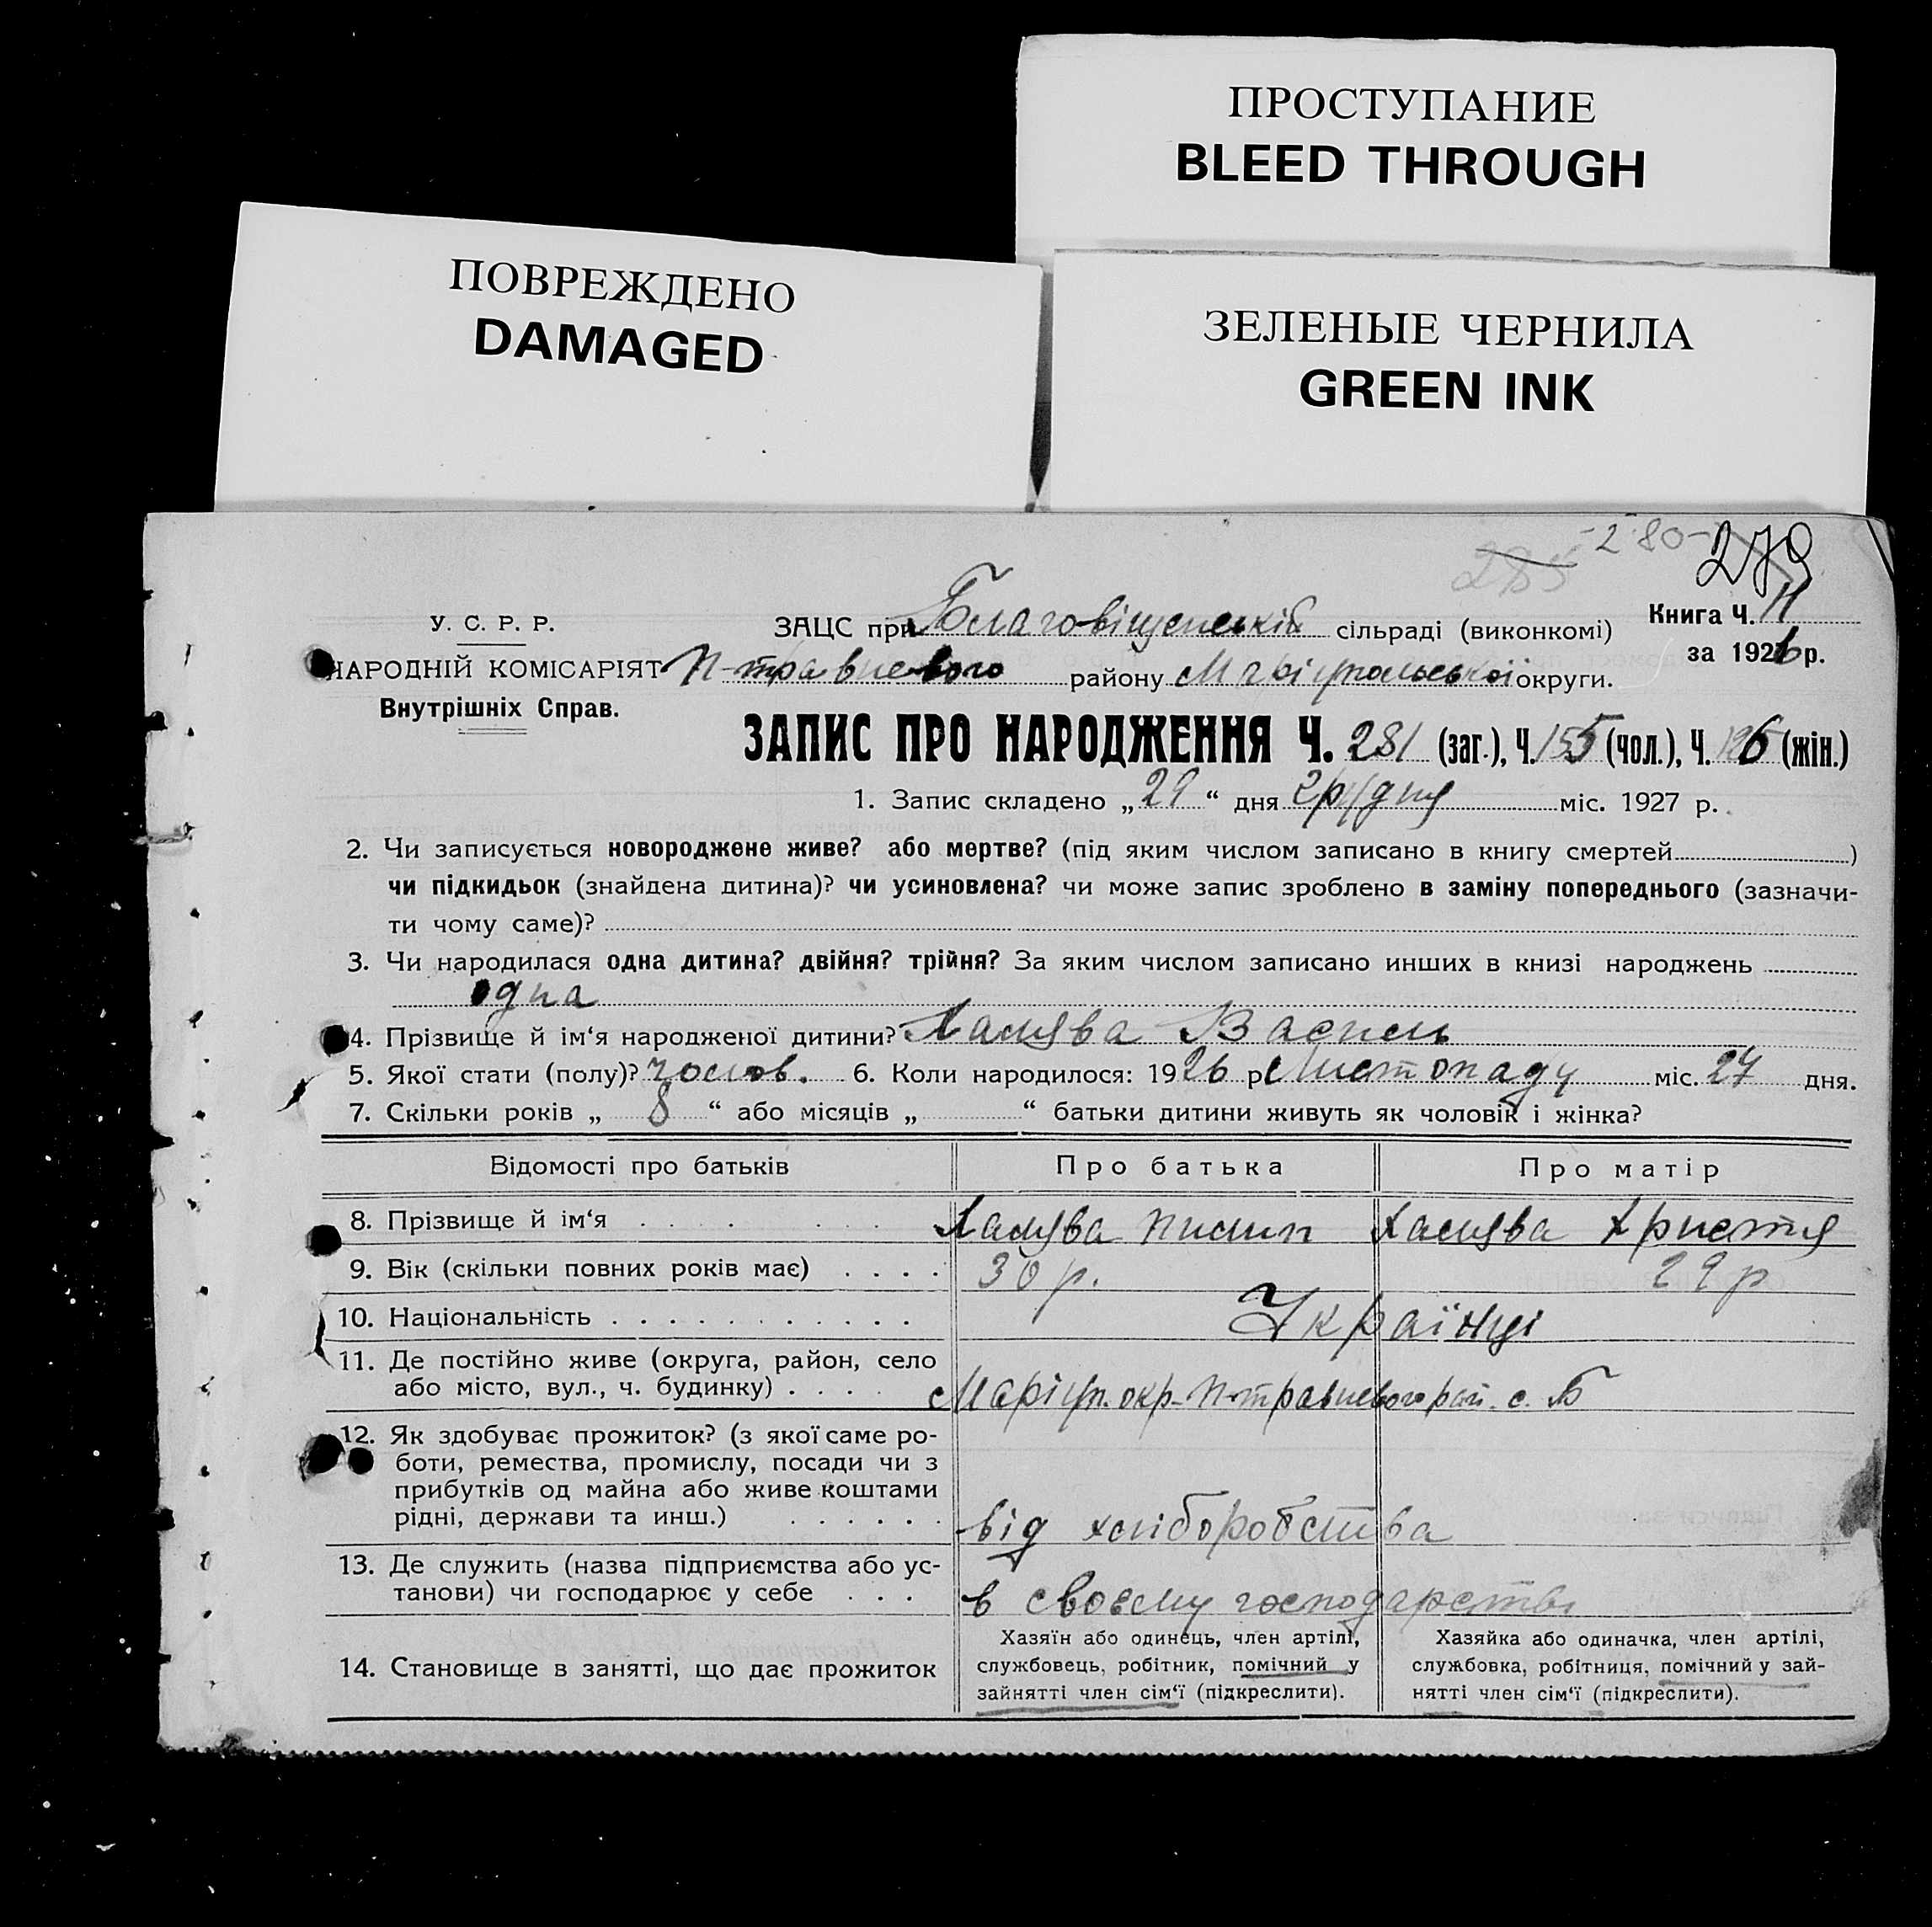 ПРОСТУПАНИЕ
BLEED THROUGH
ПОВРЕЖДЕНО
DAMAGED
ЗЕЛЕНЫЕ ЧЕРНИЛА
GREEN INK
285 -280- 279
У. С. Р. Р.
НАРОДНІЙ КОМІСАРІЯТ
Внутрішніх Справ.
ЗАЦС при Благовіщенській сільраді (виконкомі)
П-травневого району Маріупольської округи.
Книга Ч. II
за 1926 р.
ЗАПИС ПРО НАРОДЖЕННЯ Ч. 281 (заг.), Ч. 155 (чол.), Ч. 126 (жін.)
1. Запис складено „ 29 “ дня грудня міс. 1927 р.
2. Чи записується новороджене живе? або мертве? (під яким числом записано в книгу смертей )
чи підкидьок (знайдена дитина)? чи усиновлена? чи може запис зроблено в заміну попереднього (зазначи-
ти чому саме)?
3. Чи народилася одна дитина? двійня? трійня? За яким числом записано инших в книзі народжень
одна
4. Прізвище й ім‘я народженої дитини? Халява Василь
5. Якої стати (полу)? чолов. 6. Коли народилося: 1926 р. Листопаду міс. 27 дня.
7. Скільки років „ 8 “ або місяців „ “ батьки дитини живуть як чоловік і жінка?
Відомості про батьків Про батька Про матір
8. Прізвище й ім‘я Халява Пилип Халява Христя
9. Вік (скільки повних років має) 30 р. 29 р
10. Національність Українці
11. Де постійно живе (округа, район, село
або місто, вул., ч. будинку) Маріуп. окр. П-травневого рай. с. Б
12. Як здобуває прожиток? (з якої саме ро-
боти, ремества, промислу, посади чи з
прибутків од майна або живе коштами
рідні, держави та инш.) від хліборобства
13. Де служить (назва підприємства або ус-
танови) чи господарює у себе в своєму господарстві
14. Становище в занятті, що дає прожиток
Хазяїн або одинець, член артілі,
службовець, робітник, помічний у
зайнятті член сім‘ї (підкреслити).
Хазяйка або одиначка, член артілі,
службовка, робітниця, помічний у зай-
нятті член сім‘ї (підкреслити).